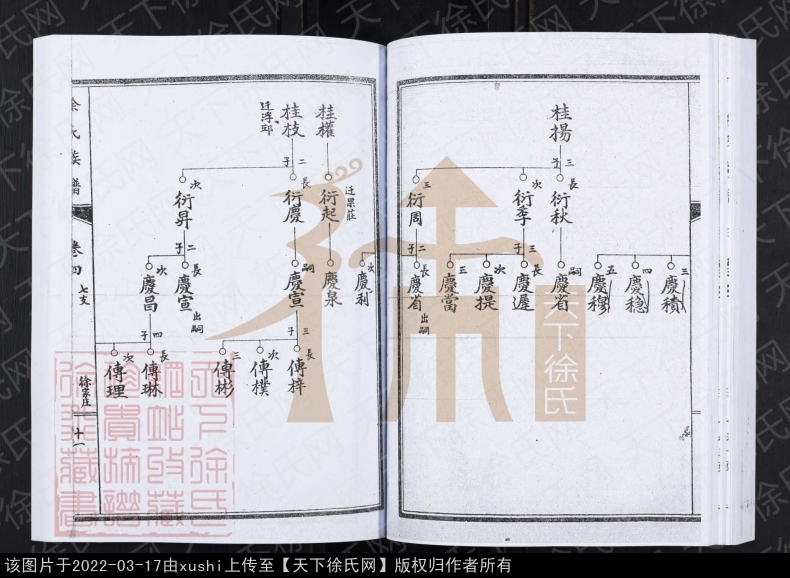 桂揚
三子
長
衍秋
次
衍季
三
衍周
三
慶積
四
慶穩
五
慶穆
嗣
慶省
三子
長
慶遲
次
慶提
三
慶當
二子
長
慶省
出嗣
次
慶利
桂權
迁果莊
衍起
慶泉
桂枝
迁浮邱
二子
長
衍慶
次
衍昇
嗣
慶宣
二子
長
慶宣
出嗣
次
慶昌
三子
長
傳梓
次
傳樸
三
傳彬
四子
長
傳琳
次
傳理
徐氏族譜
卷四
七支
徐家庄
十一
天下徐氏
天下徐氏网
该图片于2022-03-17由xushi上传至【天下徐氏网】版权归作者所有